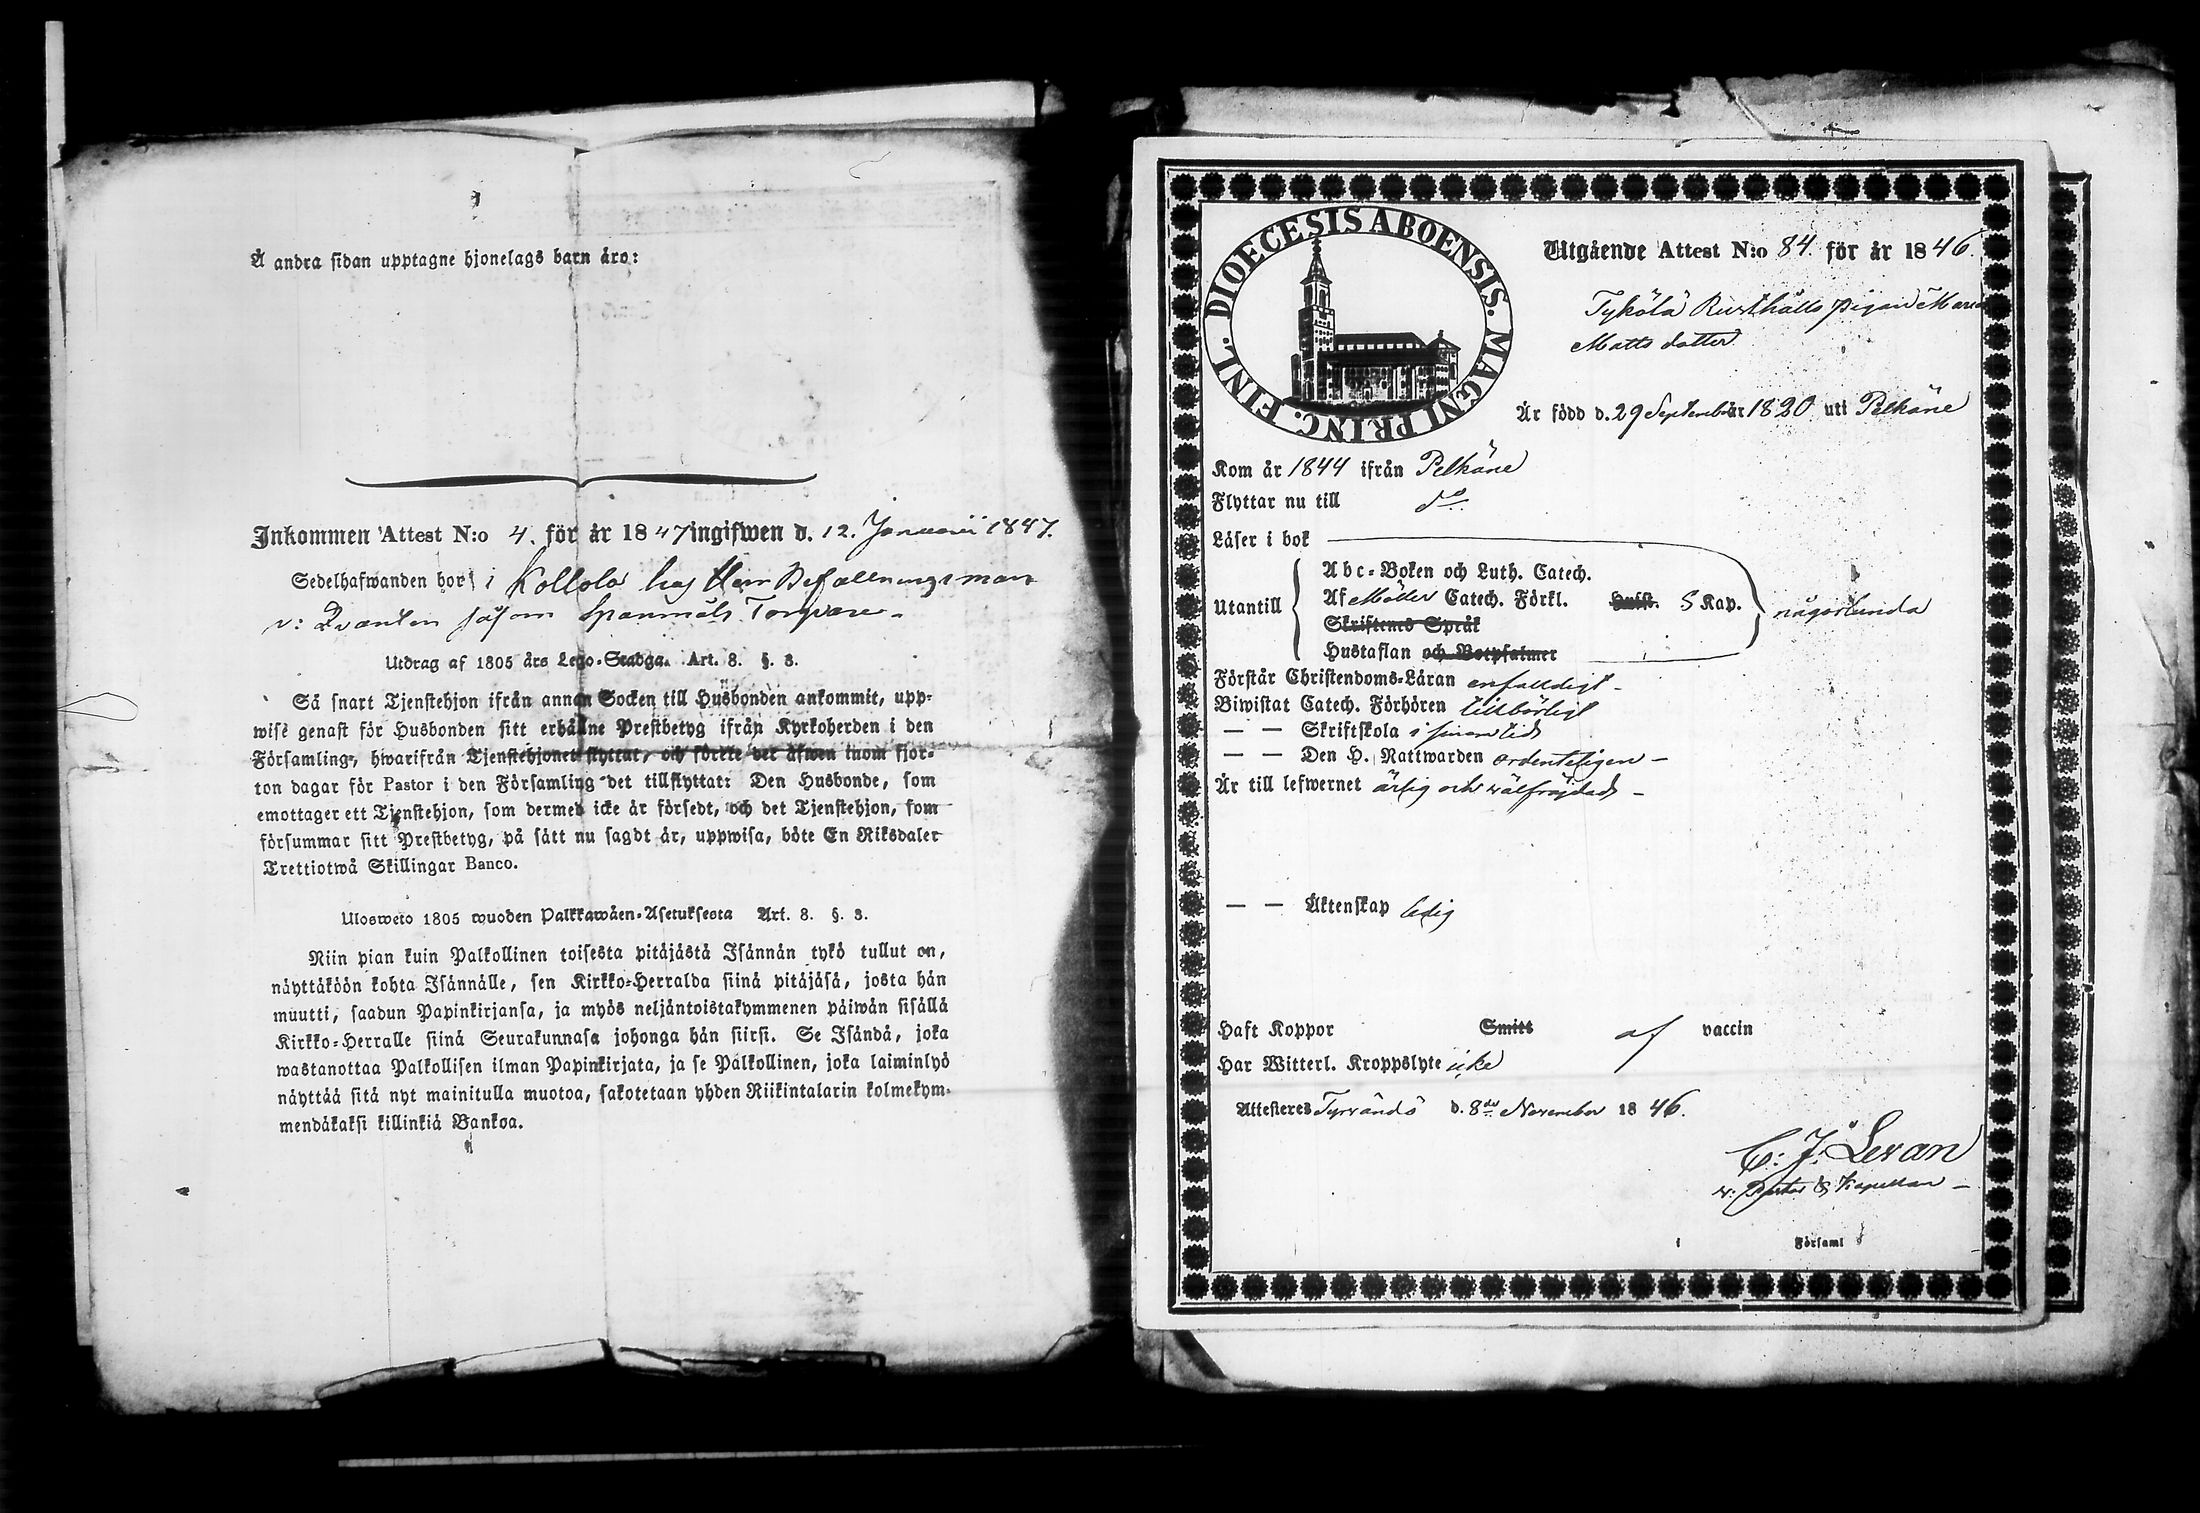 Å andra sidan upptagne hjonelags barn äro:
Inkommen Attest N:o 4. för år 1847 ingifwen d. 12. Januarii 1847.
Sedelhafwanden bor i Kollola hos Herr Befallningsman
v: Qvanten såsom Spanmåls Torpare
Utdrag af 1805 års Lego-Stadga. Art. 8. §. 3.
Så snart Tjenstehjon ifrån annan Socken till Husbonden ankommit, upp-
wise genast för Husbonden sitt erhållne Prestbetyg ifrån Kyrkoherden i den
Församling, hwarifrån Tjenstehjonet flyttat, och förete det äfwen inom fjor-
ton dagar för Pastor i den Församling det tillflyttat: Den Husbonde, som
emottager ett Tjenstehjon, som dermed icke är försedt, och det Tjenstehjon, som
försummar sitt Prestbetyg, på sätt nu sagdt är, uppwisa, böte En Riksdaler
Trettiotwå Skillingar Banco.
Ulosweto 1805 wuoden Palkkawäen-Asetuksesta Art. 8. §. 3.
Niin pian kuin Palkollinen toisesta pitäjästä Isännän tykö tullut on,
näyttäköön kohta Isännälle, sen Kirkko-Herralda siinä pitäjäsä, josta hän
muutti, saadun Papinkirjansa, ja myös neljäntoistakymmenen päiwän sisällä
Kirkko-Herralle siinä Seurakunnasa johonga hän siirsi. Se Isändä, joka
wastanottaa Palkollisen ilman Papinkirjata, ja se Palkollinen, joka laiminlyö
näyttää sitä nyt mainitulla muotoa, sakotetaan yhden Riikintalarin kolmekym-
mendäkaksi killinkiä Bankoa.
DIOECESIS ABOENSIS. MAGNI PRINC. FINL.
Utgående Attest N:o 84. för år 1846.
Tykölä Rusthålls pigan Maria
Matts dotter
Är född d. 29 September 1820 uti Pelkäne
Kom år 1844 ifrån Pelkäne
Flyttar nu till do
Läser i bok
Abc-Boken och Luth. Catech.
Utantill Af Möller Catech. Förkl. Huss. 5 Kap. någorlunda
Skriftenes Språk
Hustaflan och Botpsalmer
Förstår Christendoms-Läran enfalldigt
Biwistat Catech. Förhören tillbörligt
— — Skriftskola i sinom tid
— — Den H. Nattwarden ordenteligen
Är till lefwernet ärlig och wälfrägdad
— — Äktenskap ledig
Haft Koppor Smitt af vaccin
Har Witterl. Kroppslyte icke
Attesteres Tyrvändö d. 8de November 1846.
C: J: Levan
v: Pastor & Kapellan
i Församl